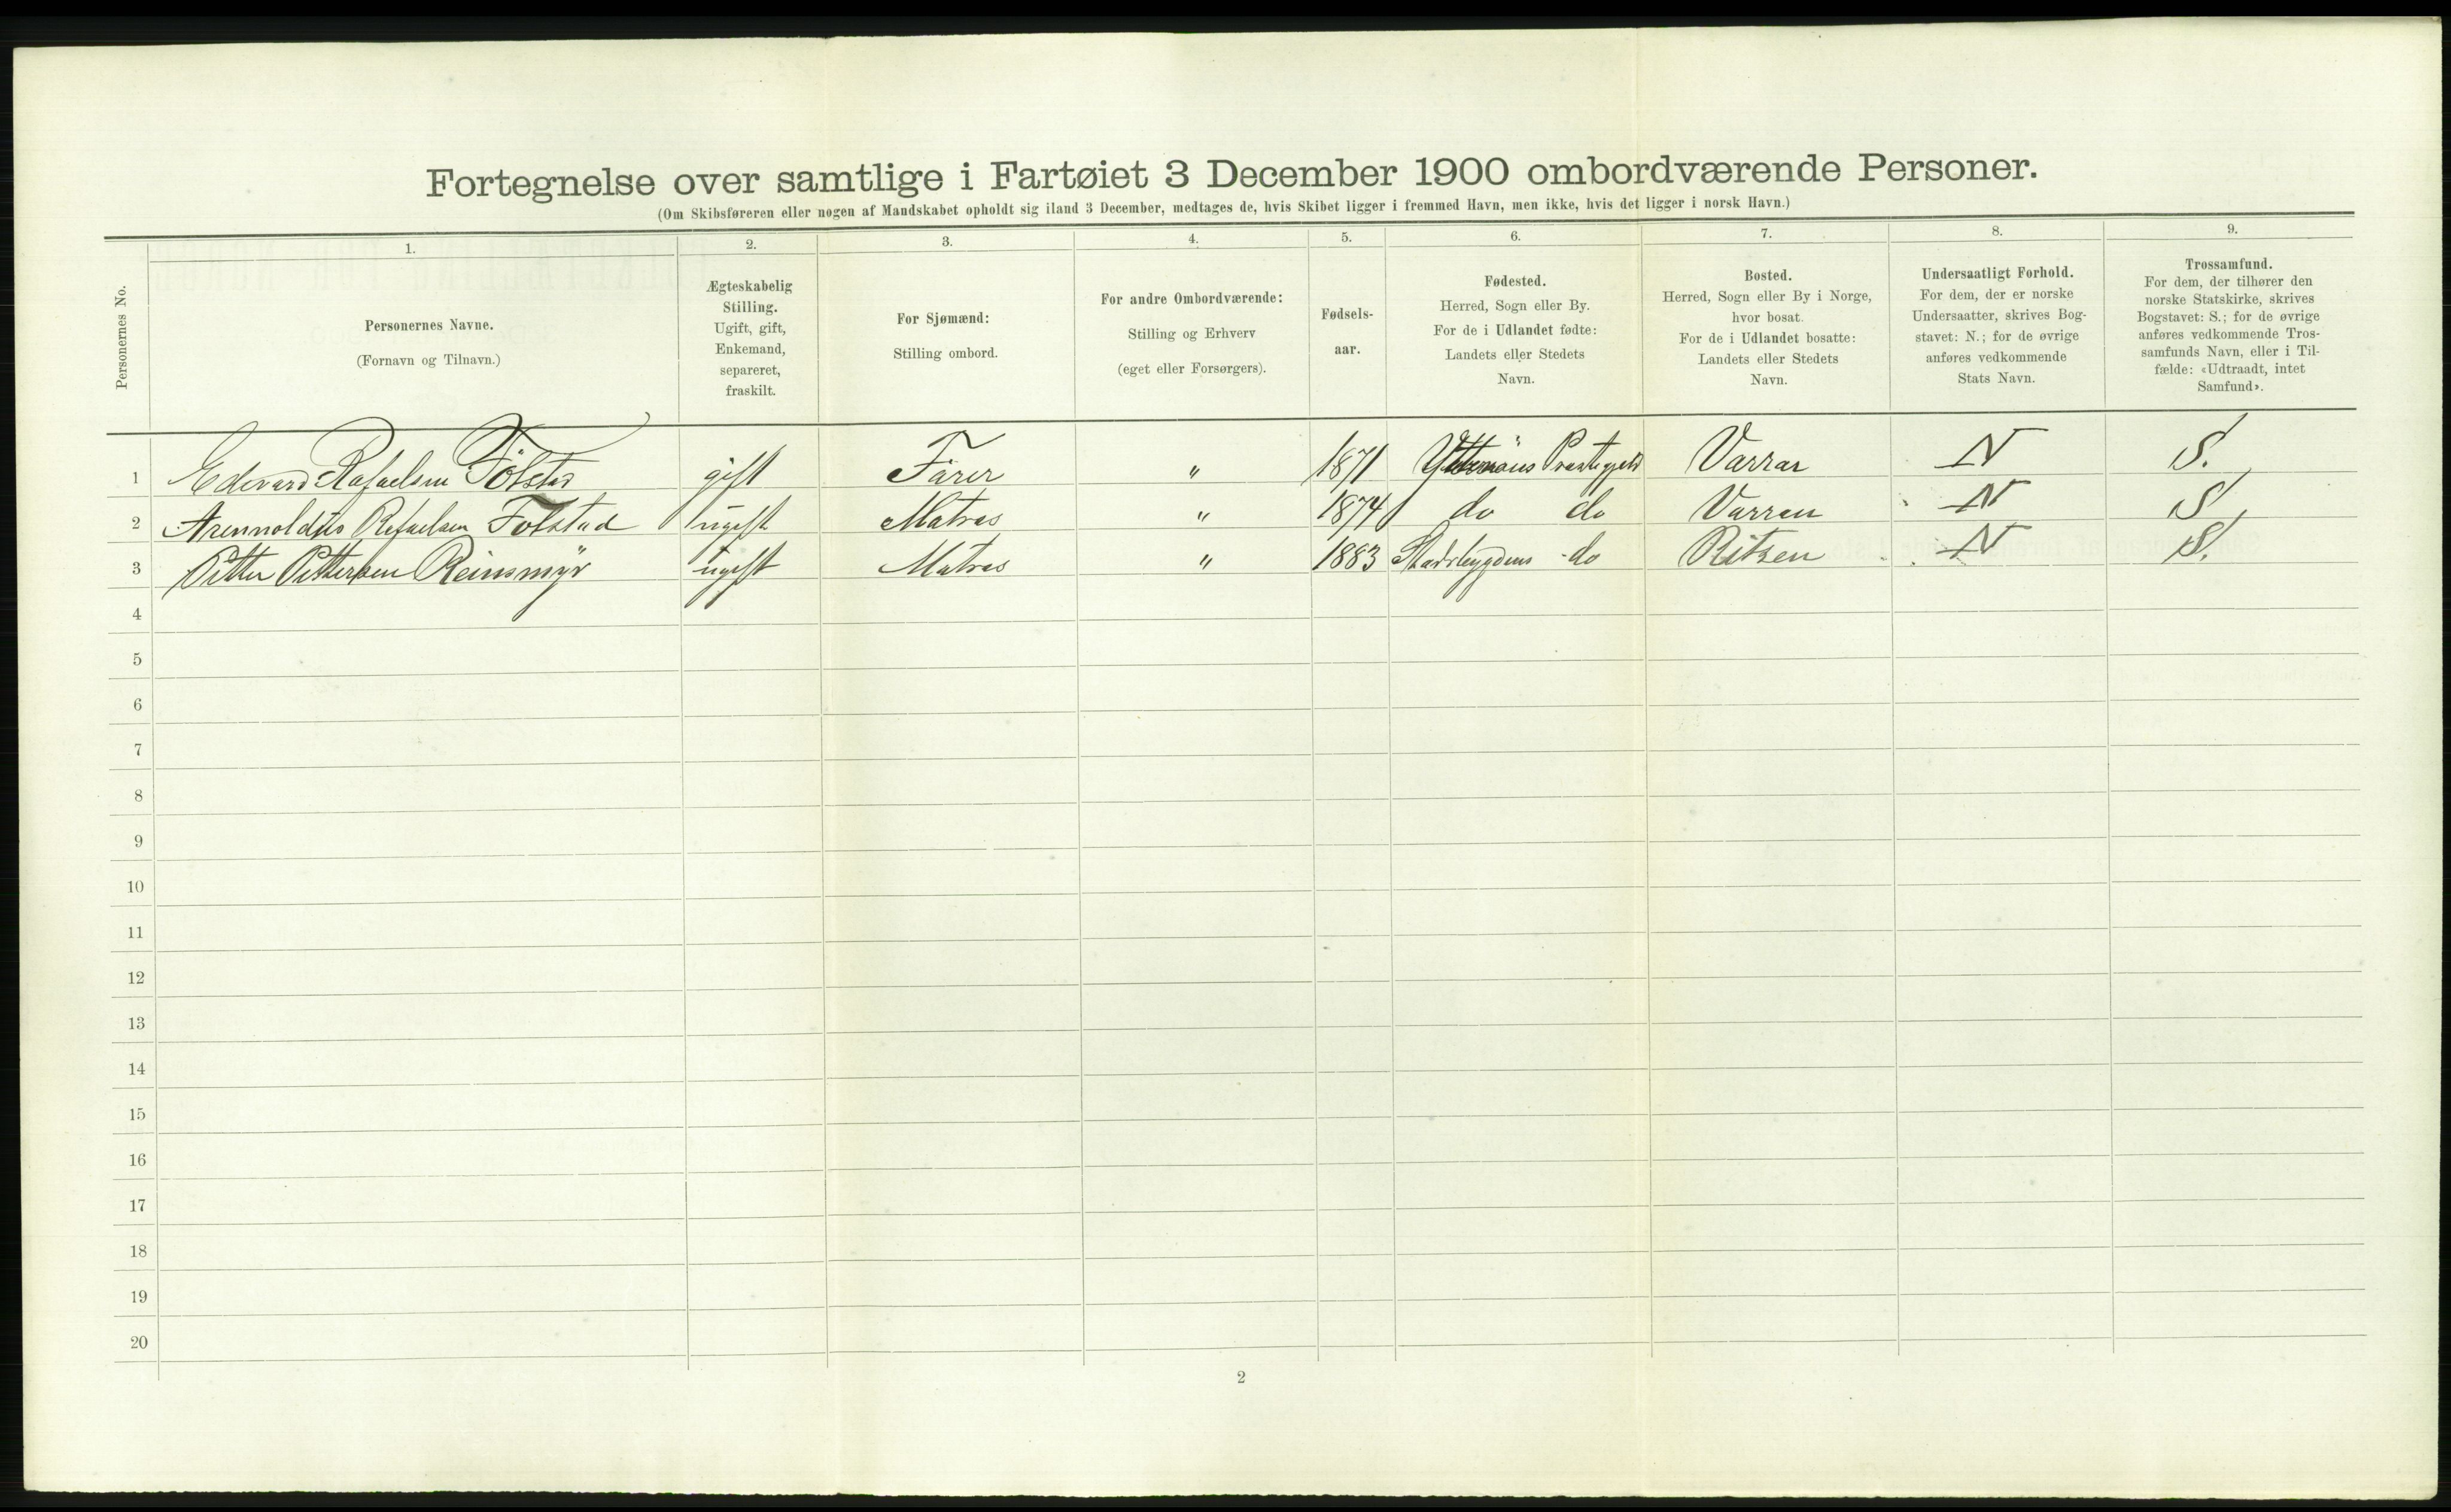 Fortegnelse over samtlige i Fartøiet 3 December 1900 ombordværende Personer.
(Om Skibsføreren eller nogen af Mandskabet opholdt sig iland 3 December, medtages de, hvis Skibet ligger i fremmed Havn, men ikke, hvis det ligger i norsk Havn.)
Personernes No.
1.
Personernes Navne.
(Fornavn og Tilnavn.)
2.
Ægteskabelig
Stilling.
Ugift, gift,
Enkemand,
separeret,
fraskilt.
3.
For Sjømænd:
Stilling ombord.
4.
For andre Ombordværende:
Stilling og Erhverv
(eget eller Forsørgers).
5.
Fødsels-
aar.
6.
Fødested.
Herred, Sogn eller By.
For de i Udlandet fødte:
Landets eller Stedets
Navn.
7.
Bosted.
Herred, Sogn eller By i Norge,
hvor bosat.
For de i Udlandet bosatte:
Landets eller Stedets
Navn.
8.
Undersaatligt Forhold.
For dem, der er norske
Undersaatter, skrives Bog-
stavet: N.; for de øvrige
anføres vedkommende
Stats Navn.
9.
Trossamfund.
For dem, der tilhører den
norske Statskirke, skrives
Bogstavet: S.; for de øvrige
anføres vedkommende Tros-
samfunds Navn, eller i Til-
fælde: «Udtraadt, intet
Samfund».
1 Edevard Rafaelsen gift Fører " 1871 Varran N S.
2 Rafaelsen Folstad ugift Matros " 1874 do do Varran N S
3 Pitter Pittersen Reinsmyr ugift Matros " 1883 Stadsbygdens do Ritsen N S.
4
5
6
7
8
9
10
11
12
13
14
15
16
17
18
19
20
2